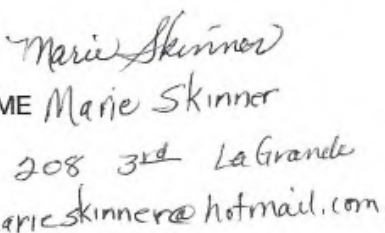 Marie Skinner
ME Marie Skinner
208 3rd La Grande
arieskinner@hotmail.com